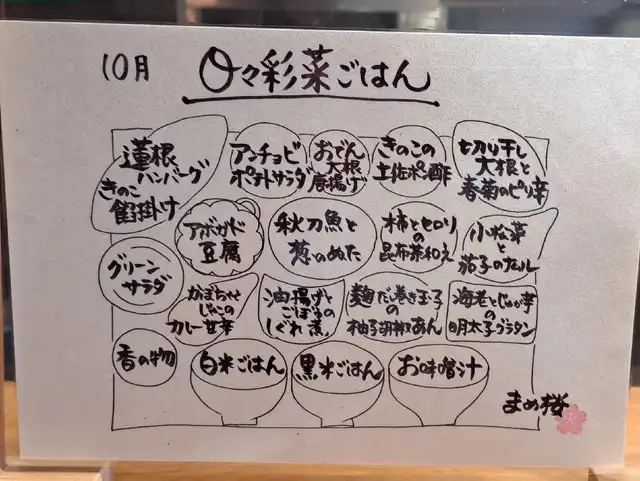 10月
日々彩菜ごはん
蓮根
ハンバーグ
きのこ
餡掛け
アンチョビ
ポテトサラダ
おでん
大根
唐揚げ
きのこの
土佐ポン酢
切り干し
大根と
春菊のピリ辛
アボカド
豆腐
秋刀魚と
葱のぬた
柿とセロリ
の
昆布茶和え
小松菜
と
茄子のナムル
グリーン
サラダ
かぼちゃと
じゃこの
カレー甘辛
油揚げと
ごぼうの
しぐれ煮
麹だし巻き玉子
の
柚子胡椒あん
海老とじゃが芋
の
明太子グラタン
香の物
白米ごはん
黒米ごはん
お味噌汁
まめ桜